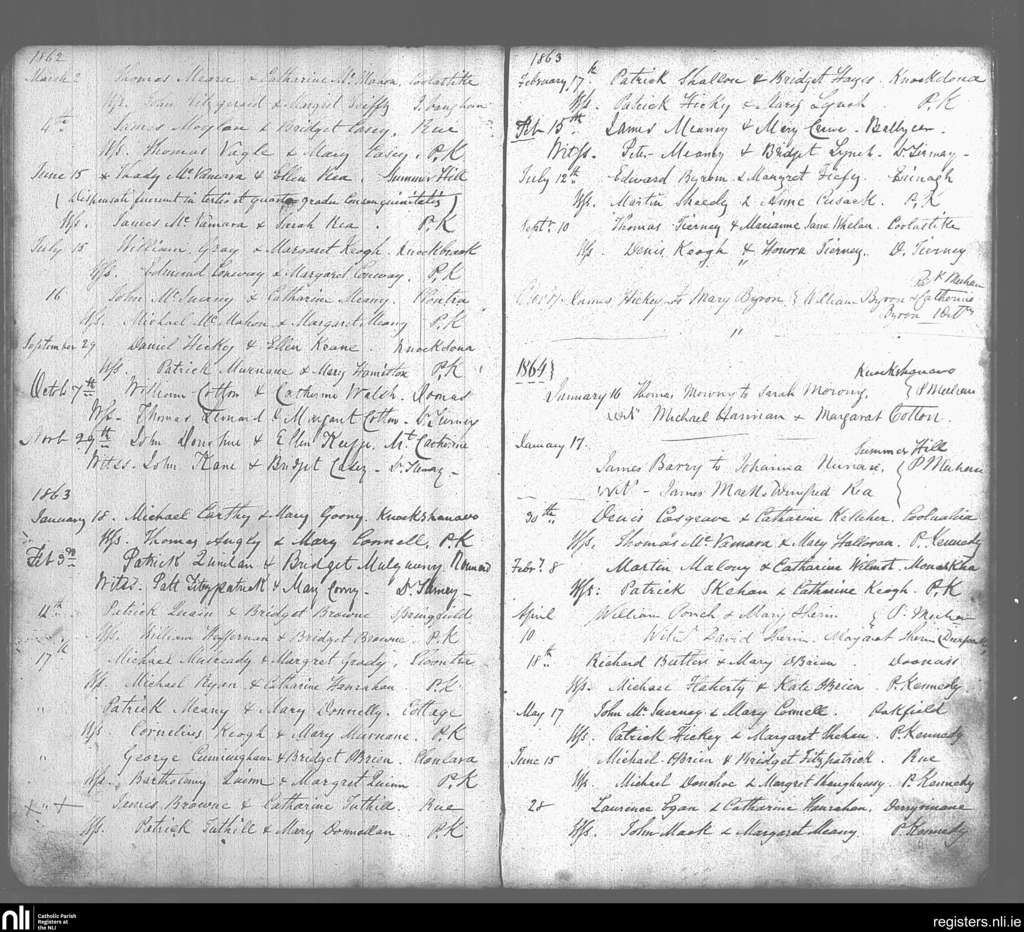 1862
March 2 Thomas Meara & Catherine McMara Coolastike
Ws. John Fitzgerald & Margret
4th James Moylan & Bridget Casey. Rue
Ws. Thomas Nagle & Mary Casey. P.K
June 15 x Thady McNamara & Ellen Rea. Summer Hill
(Dispensati fuerunt in tertio et quarto gradu Consanguinitatis)
Ws. James McNamara & Sarah Rea. P.K
July 15 William Gray & Margaret Keogh. Knockbrack
Ws. Edmond Conway & Margaret Conway. P.K
16 John & Catharine Meany.
Ws. Michael McMahon & Margaret Meany P.K
September 29 Daniel Hickey & Ellen Keane. Knockdona
Ws. Patrick Murnane & Mary Hamilton P.K
Octob 7th William Cotton & Catharine Walsh. Doonas
Ws- Thomas & Margaret Cotton- D. Tierney
Novb 29th John Donohue & Ellen Keffe. Mt Catherine
Witss. John Kane & Bridget Casey- D. Tierney-
1863
January 18. Michael Carthy & Mary Knockshanavo
Ws. Thomas & Mary Connell. P.K
Feb 3rd Patrick Quinlan & Bridget
Witss. Patt Fitzpatrick & Mary D. Tierney-
12th Patrick Quain & Bridget Browne Springfield
Ws. William Heffernan & Bridget Browne. P.K
17th Michael & Margret Grady.
Ws. Michael Ryan & Catharine Hanrahan. P.K
" Patrick Meany & Mary Donnelly. Cottage
Ws. Cornelius Keogh & Mary Murnane. P.K
" George Cunningham & Bridget OBrien. Clonlara
Ws. Bartholomy Quinn & Margret Quinn P.K
x " + James Browne & Catharine Tuthill. Rue
Ws. Patrick Tuthill & Mary Donnellan. P.K
1863
February 17th Patrick Shallow & Bridget Hayes. Knockdona
Ws. Patrick Hicky & Mary Lynch. P.K
Feb 15th James Meaney & Mary Ballycar.
Witss. Peter Meaney & Bridget Lynch. D. Tierney-
July 12th Edward Byrom & Margret
Ws. Martin Sheedy & Anne Cusack. P.K
Septr. 10 Thomas Tierney & Marianne Jane Whelan. Coolastike
Ws. Denis Keogh & Honora Tierney. D. Tierney
James Hickey to Mary Byron { William Byron & Catherine
Byron
"
1864}
Knockshanavo
January 16 Thomas Morony to Sarah Morony. { P Meehan
Wit Michael Hannan & Margarat Cotton.
January 17.
Summer Hill
James Barry to Johanna { P Meehan
Wit - James Mack & Winifred Rea
30th Denis Cosgrave & Catharine Kelleher.
Ws. Thomas McNamara & Mary Halloran. P. Kennedy
Febry. 8 Martin Malony & Catharine Wilmot.
Ws: Patrick Skehan & Catharine Keogh. P.K
April William & Mary { P. Meehan
10 Wit David Margaret
18th Richard Butler & Mary OBrien. Doonass
Ws. Michael Flaherty & Kate OBrien P. Kennedy.
May 17 John McInerney & Mary Connell. Oakfield
Ws. Patrick Hickey & Margaret Skehan P. Kennedy
June 15 Michael OBrien & Bridget Fitzpatrick. Rue
Ws. Michael Donohoe & Margret Shaughnessy. P. Kennedy
28 Laurence Egan & Catharine Hanrahan. Derryomane
Ws. John Mack & Margaret Meany. P. Kennedy
nli Catholic Parish
Registers at
the NLI
registers.nli.ie